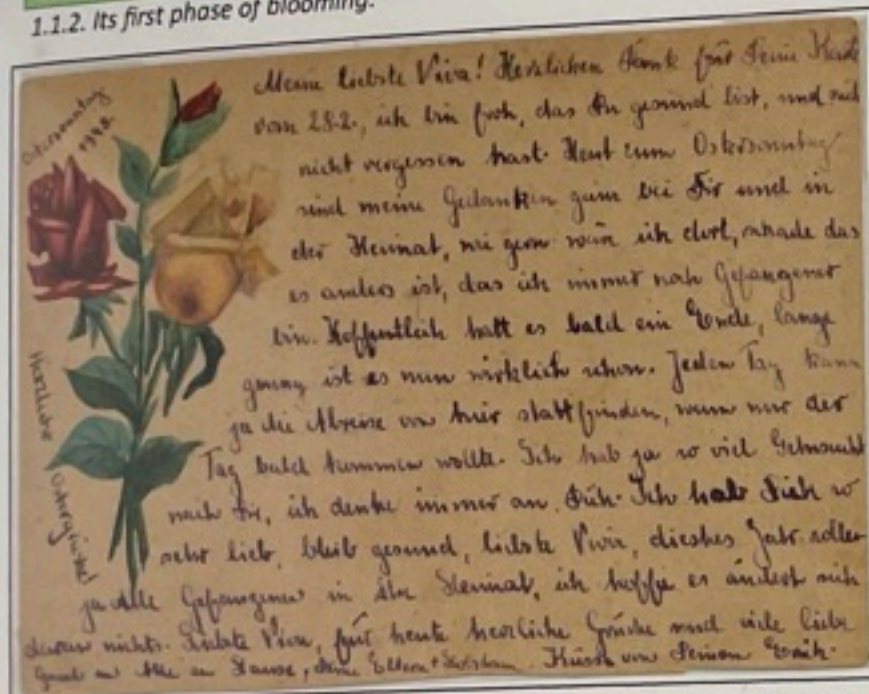 1.1.2. Its first phase of blooming.
Ostersonntag
1948.
Meine liebste Viva! Herzlichen Dank für Deine Karte
vom 28.2., ich bin froh, das Du gesund bist, und mich
nicht vergessen hast. Heut zum Ostersonntag
sind meine Gedanken ganz bei Dir und in
der Heimat, wie gern wär ich dort, schade das
es anders ist, das ich immer noch Gefangener
bin. Hoffentlich hatt es bald ein Ende, lange
genug ist es nun wirklich schon. Jeden Tag kann
ja die Abreise von hier stattfinden, wenn nur der
Tag bald kommen wollte. Ich hab ja so viel Sehnsucht
nach Dir, ich denke immer an Dich. Ich hab Dich so
sehr lieb, bleib gesund, liebste Viva, dieshes Jahr sollen
ja Alle Gefangenen in der Heimat, ich hoffe es ändert sich
daran nichts. Liebste Viva, für heute herzliche Grüsse und viele liebe
an Alle zu Hause, Deine Eltern + Küsse von Deinem Erich.
Herzliche Ostergrüsse!